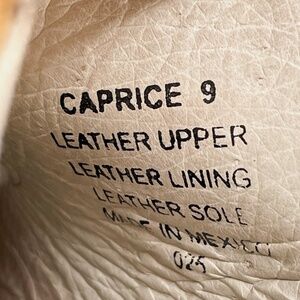 CAPRICE 9
LEATHER UPPER
LEATHER LINING
LEATHER SOLE
MADE IN MEXICO
025